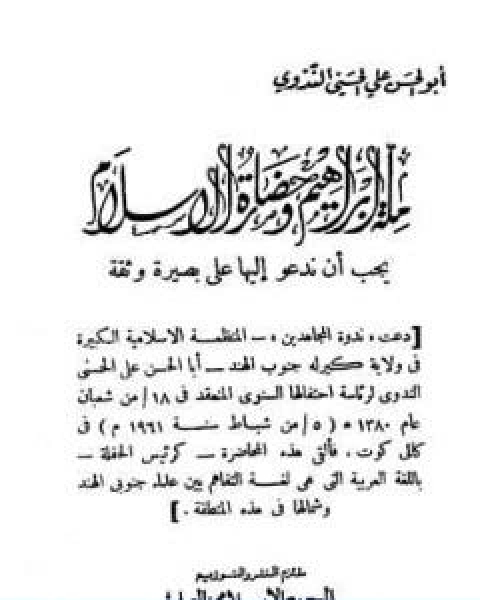 أبو الحسن علي الحسني الندوي
ملة إبراهيم وحضارة الإسلام
يجب أن ندعو إليها على بصيرة وثقة
[ دعت « ندوة المجاهدين » – المنظمة الاسلامية الكبيرة
فى ولاية كيرله جنوب الهند – أبا الحسن على الحسنى
الندوى لرئاسة احتفالها السنوى المنعقد فى ١٨/ من شعبان
عام ١٣٨٠ ه ( ٥/ من شباط سنة ١٩٦١ م ) فى
كالى كوت ، فألقى هذه المحاضرة – كرئيس الحفلة –
باللغة العربية التى هى لغة التفاهم بين علماء جنوبى الهند
وشمالها فى هذه المنطقة . ]
ملتزم النشر والتوزيع
المجمع الإسلامي العلمي